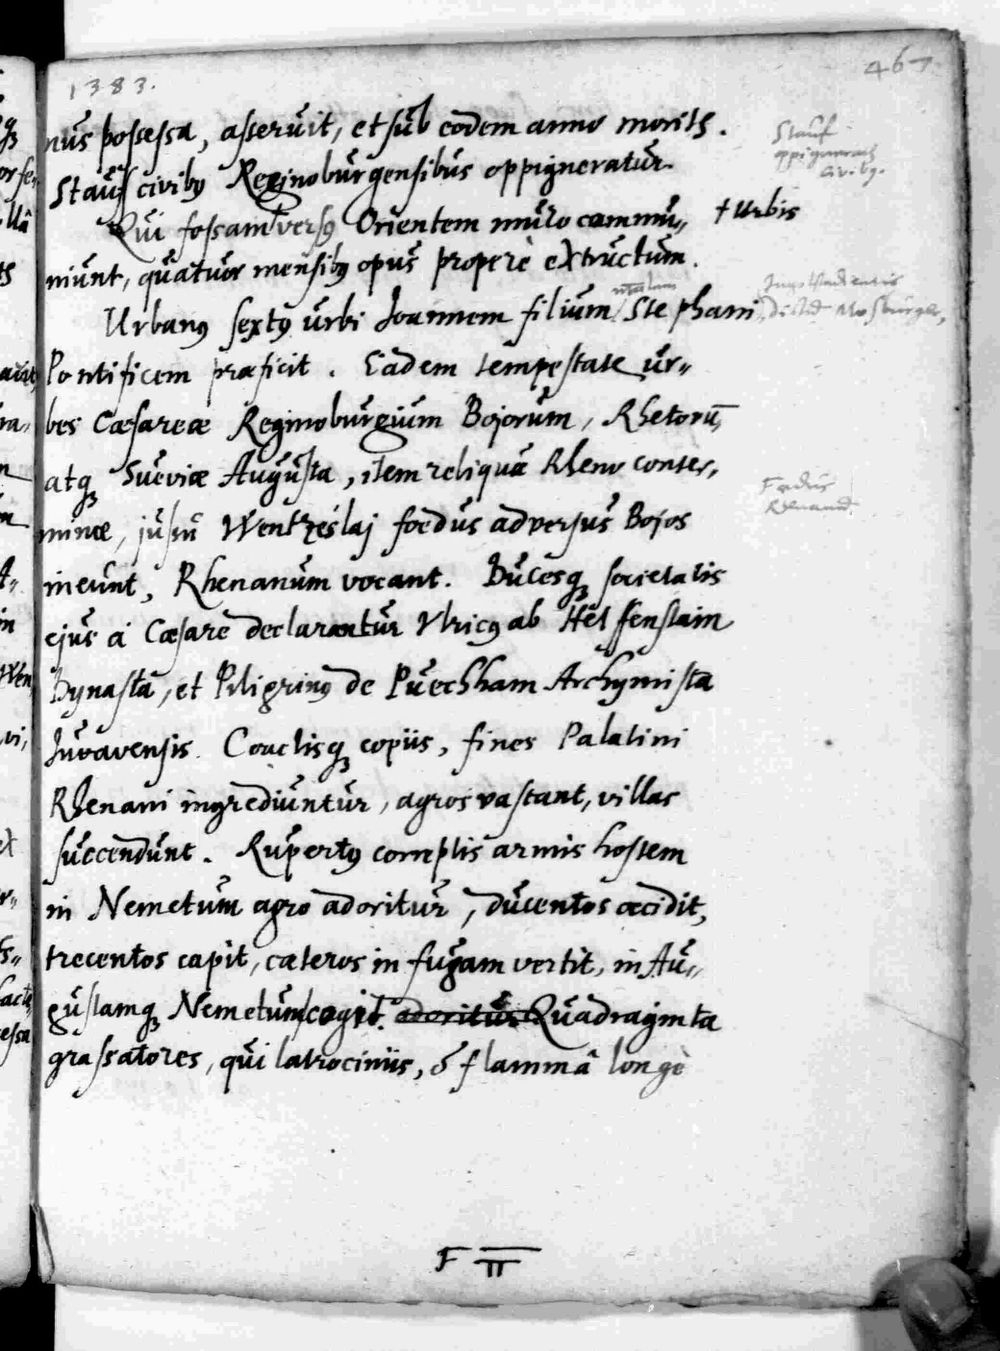 1383.
467
nus possessa, asseruit, et sub eodem anno moritꝫ.
Stauf civibꝰ Reginoburgensibus oppigneratur.
Stauf
civibꝫ.
Qui fossam † versꝰ Orientem muro commu„
† Urbis
niunt, quatuor mensibꝫ opus properè extructum.
Urbanꝰ sextꝰ urbi Joannem filium Stephani
Pontificem præficit. Eadem tempestate ur„
bes Cæsareæ Reginoburgium Bojorum, Rhetorū,
atqꝫ Sueviæ Augusta, item reliquæ Rheno conter,
minæ, jussu Wentzeslaj foedus adversus Bojos
Fœdus
Rhenanū
ineunt, Rhenanum vocant. Ducesqꝫ societatis
ejus à Cæsare declarantur Ulricꝰ ab Helffenstain
Dynasta, et Piligrinꝰ de Puechham Archymista
Juvavensis. Coactisqꝫ copiis, fines Palatini
Rhenani ingrediuntur, agros vastant, villas
succendunt. Rupertꝰ correptis armis hostem
in Nemetum agro adoritur, ducentos occidit,
trecentos capit, cæteros in fugam vertit, in Au„
gustamqꝫ Nemetum cogit. adoritur Quadraginta
grassatores, qui latrociniis, & flammâ longè
F II